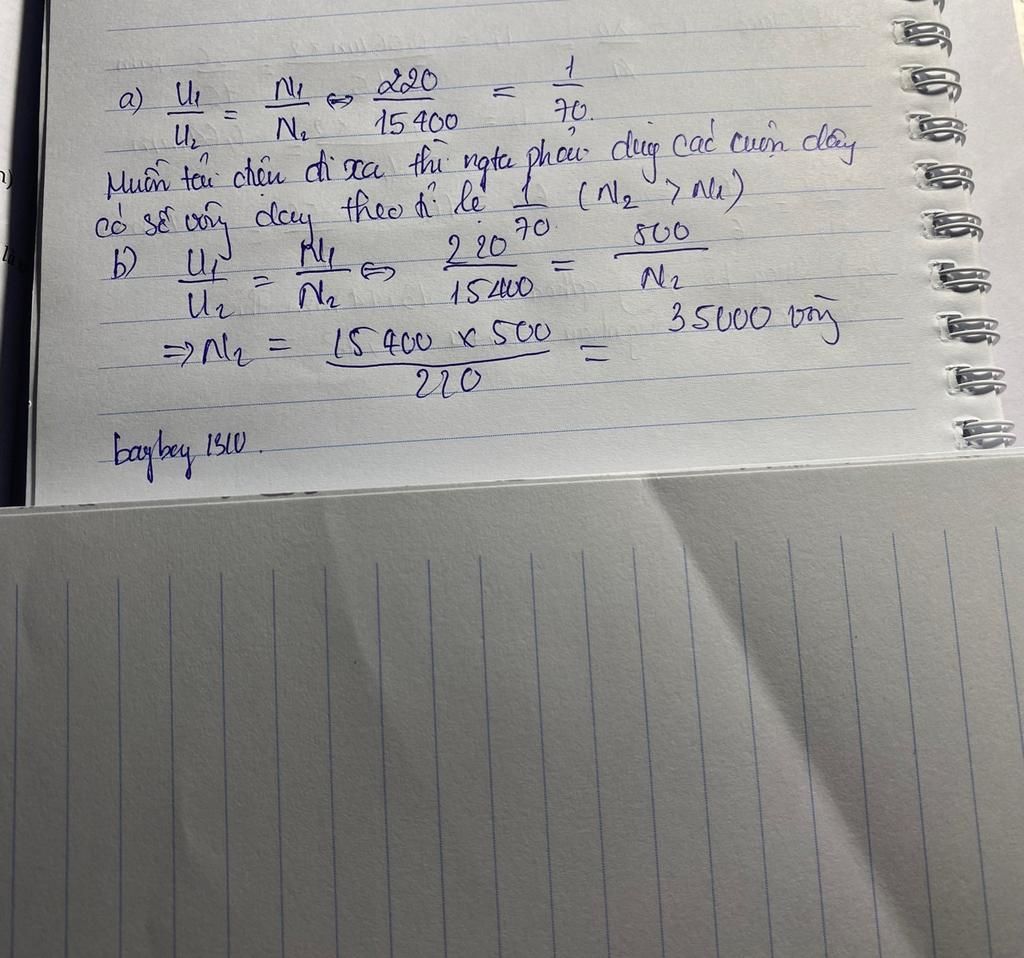 a) U₁/U₂ = N₁/N₂ ⇔ 220/15400 = 1/70.
Muốn tải điện đi xa thì ngta phải dùg các cuộn dây
có số vòng dây theo tỉ lệ 1/70 (N₂ > N₁)
b) U₁/U₂ = N₁/N₂ ⇔ 220/15400 = 500/N₂
⇒ N₂ = 15400 x 500/220 = 35000 vòng